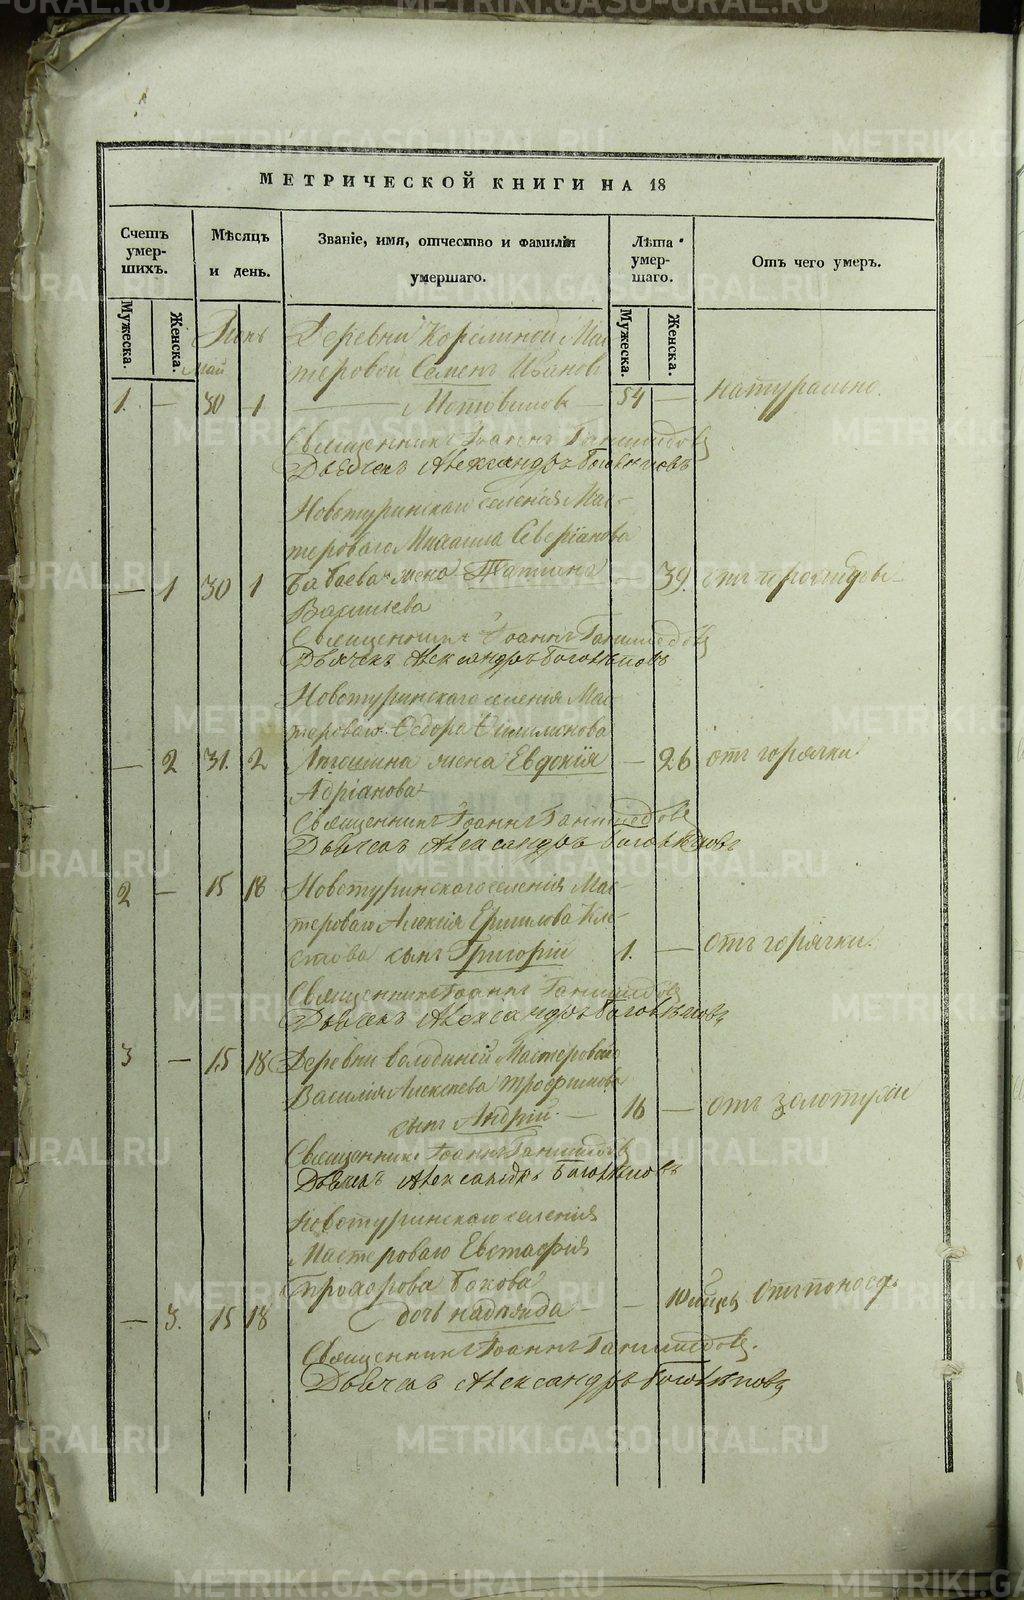 METRIKI.GASO-URAL.RU
МЕТРИЧЕСКОЙ КНИГИ НА 18
Счетъ умер-шихъ.
Мѣсяцъ и день.
Званіе, имя, отчество и фамилія умершаго.
Лѣта умер-шаго.
Отъ чего умеръ.
Мужеска.
Женска.
Мужеска.
Женска.
Іюнь
май
Деревни Корелиной Мас-
теровой Семенъ Ивановъ
1. — 30 1 Мотовиловъ — 54 — натурально.
Священникъ Іоаннъ
Дьячекъ Александръ Боголѣповъ
Новотуринскаго селенія Мас-
тероваго Михаила Северіанова
— 1 30 1 Бабаева жена Татіана — 39.
Васильева
Священникъ Іоаннъ
Дьячекъ Александръ Боголѣповъ
Новотуринскаго селенія Мас-
тероваго Ѳедора
— 2 31. 2 жена Евдокія — 26 отъ горячки
Адріанова
Священникъ Іоаннъ
Дьячекъ Александръ Боголѣповъ
2 — 15 18 Новотуринскаго селенія Мас-
тероваго Алексія Ермилова
сынъ Григорій 1. — отъ горячки.
Священникъ Іоаннъ
Дьячекъ Александръ Боголѣповъ
3 — 15 18 Деревни Мастероваго
Василія Алексѣева Трофимова
сынъ Андрій. — 16 — отъ золотухи
Священникъ Іоаннъ
Дьячекъ Александръ Боголѣповъ
Новотуринскаго селенія
Мастероваго Евстафія
Прохорова Бокова
— 3. 15 18 дочь надежда — — 10 отъ поноса.
Священникъ Іоаннъ
Дьячекъ Александръ Боголѣповъ